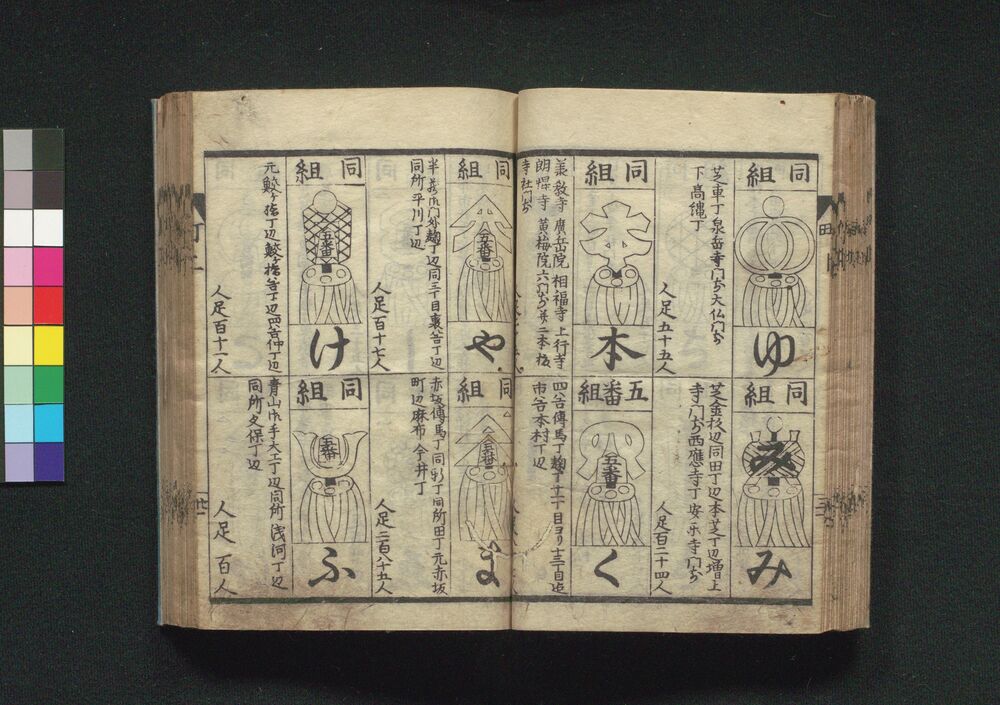 同組
ゆ
芝車丁泉岳寺門前大仏門前
下高縄丁
人足五十五人
同組
み
み
芝金杉辺同田丁辺本芝丁辺増上
寺門前西應寺丁安乐寺門前
人足百二十四人
同組
本
廣岳院 相福寺 上行寺
朗惺寺 黄梅院
寺社門前
五番組
五番
く
四谷傳馬丁麹丁十一丁目ヨリ十三丁目迄
市谷本村丁辺
同組
五番
や
半蔵御門外麹丁辺同三丁目裏谷丁辺
同所平川丁辺
人足百十七人
同組
五番
ま
赤坂傳馬丁同新丁同所田丁元赤坂
町辺麻布今井丁
人足二百八十五人
同組
五番
け
元鮫ヶ橋丁辺鮫ヶ橋谷丁辺四谷仲丁辺
人足百十一人
同組
五番
ふ
青山御手大工丁辺同所浅河丁辺
同所久保丁辺
人足百人